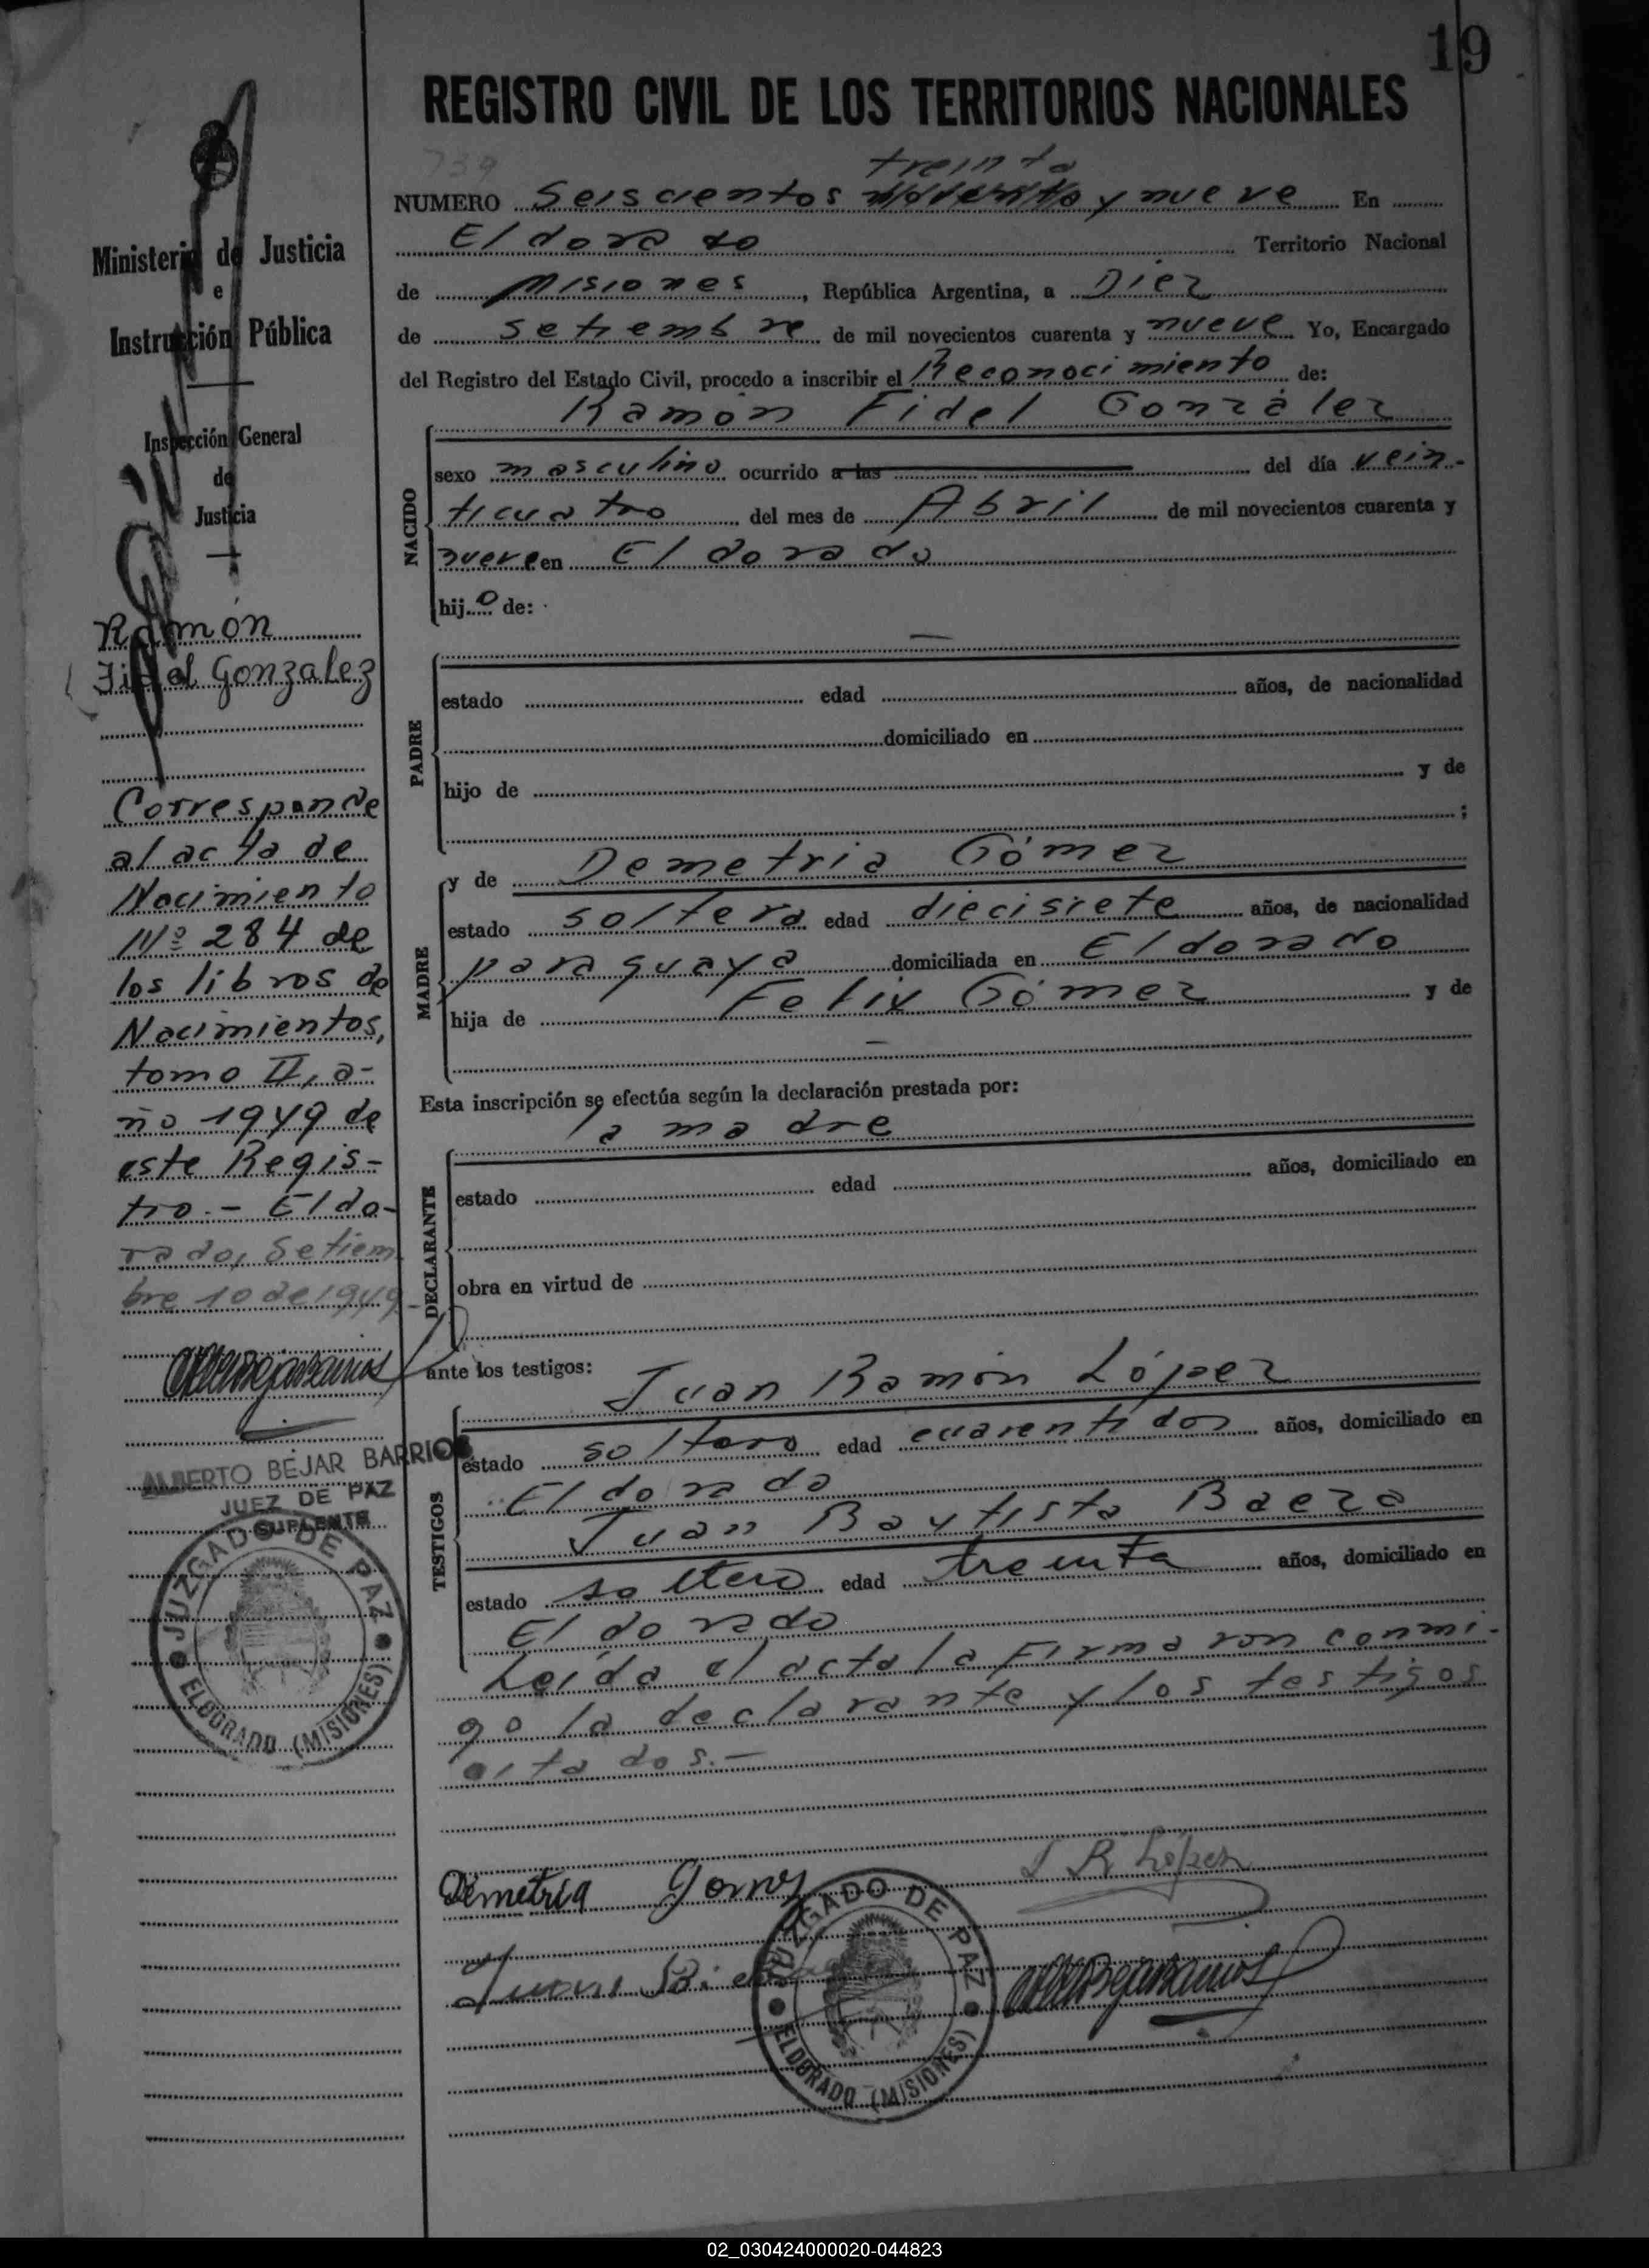 19
REGISTRO CIVIL DE LOS TERRITORIOS NACIONALES
739
treinta
NUMERO Seiscientos y nueve En
Eldorado Territorio Nacional
de Misiones, República Argentina, a Diez
de setiembre de mil novecientos cuarenta y nueve Yo, Encargado
del Registro del Estado Civil, procedo a inscribir el Reconocimiento de:
Ramón Fidel González
NACIDO
sexo masculino ocurrido a las del día vein-
ticuatro del mes de Abril de mil novecientos cuarenta y
nueve en Eldorado
hijo de:
PADRE
estado edad años, de nacionalidad
domiciliado en
hijo de y de
;
MADRE
y de Demetria Gómez
estado soltera edad diecisiete años, de nacionalidad
paraguaya domiciliada en Eldorado
hija de Felix Gómez y de
Esta inscripción se efectúa según la declaración prestada por:
la madre
DECLARANTE
estado edad años, domiciliado en
obra en virtud de
ante los testigos: Juan Ramón López
TESTIGOS
estado soltero edad cuarentidos años, domiciliado en
Eldorado
Juan Bautista Baeza
estado soltero edad treinta años, domiciliado en
Eldorado
Leída el acta la firmaron conmi-
go la declarante y los testigos
citados.-
Demetria Gomez
J R López
Juan
JUZGADO DE PAZ
ELDORADO (MISIONES)
Ministerio de Justicia
e
Instrucción Pública
Inspección General
de
Justicia
Ramón
Fidel Gonzalez
Corresponde
al acta de
Nacimiento
Nº 284 de
los libros de
Nacimientos,
tomo II, a-
ño 1949 de
este Regis-
tro.- Eldo-
rado, Setiem
bre 10 de 1949-
ALBERTO BÉJAR BARRIOS
JUEZ DE PAZ
SUPLENTE
JUZGADO DE PAZ
ELDORADO (MISIONES)
02_030424000020-044823